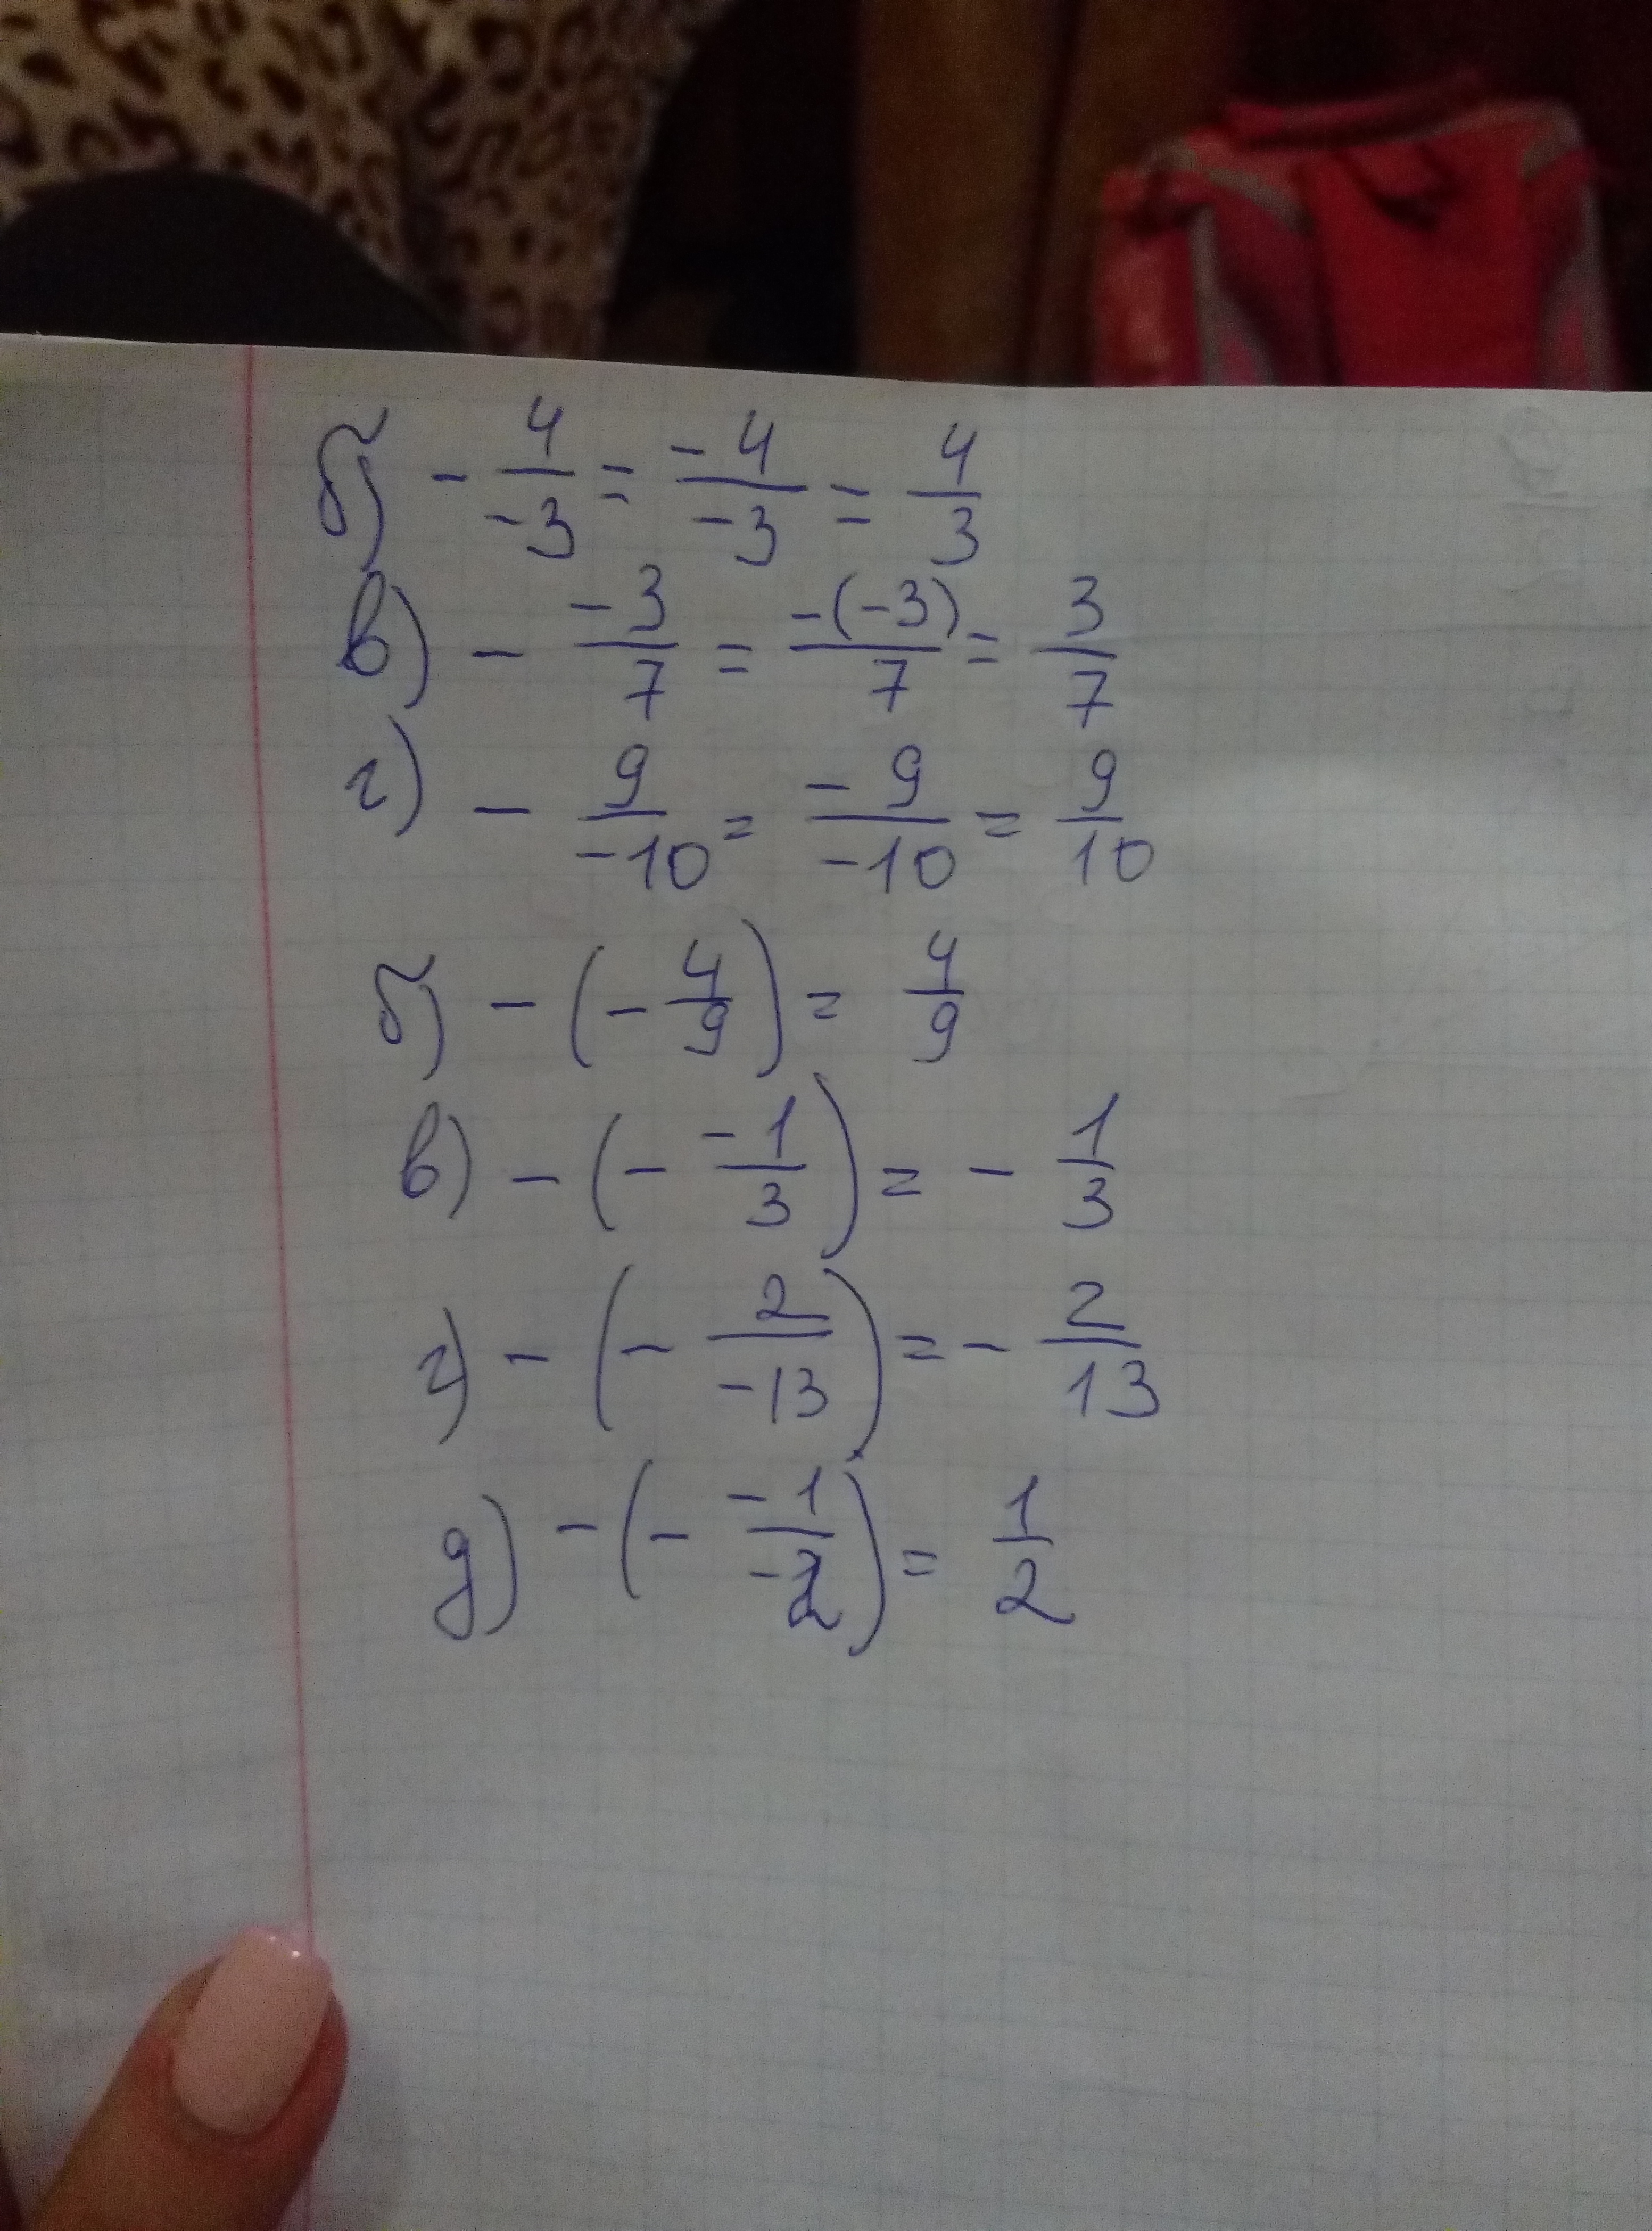 б) - 4/-3 = -4/-3 = 4/3
в) - -3/7 = -(-3)/7 = 3/7
г) - 9/-10 = -9/-10 = 9/10
б) - (- 4/9) = 4/9
в) - (- -1/3) = - 1/3
г) - (- 2/-13) = - 2/13
д) - (- -1/-2) = 1/2